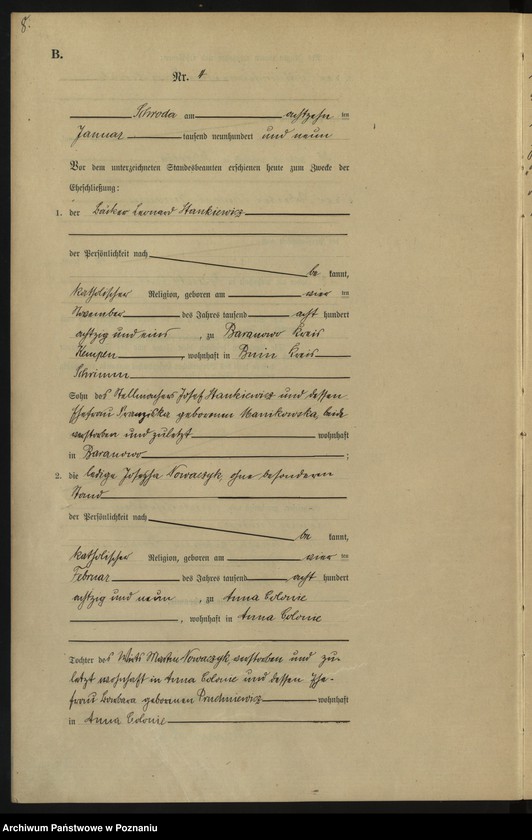 8.
B.
Nr. 8
Schroda am achtzehn ten
Januar tausend neunhundert und neun
Vor dem unterzeichneten Standesbeamten erschienen heute zum Zwecke der
Eheschließung:
1. der Bäcker Leonard Stankiewicz
der Persönlichkeit nach
be kannt,
katholischer Religion, geboren am vier ten
November des Jahres tausend acht hundert
achtzig und eins , zu Baranowo Kreis
Kempen , wohnhaft in Bnin Kreis
Schrimm
Sohn des Stellmachers Josef Stankiewicz und dessen
Ehefrau Franziska geborenen Manikowska, beide
verstorben und zuletzt wohnhaft
in Baranowo ;
2. die ledige Josepha Nowaczyk, ohne besonderen
Stand
der Persönlichkeit nach
be kannt,
katholischer Religion, geboren am vier ten
Februar des Jahres tausend acht hundert
achtzig und neun , zu Anna Colonie
, wohnhaft in Anna Colonie
Tochter des Wirts Martin Nowaczyk, verstorben und zu-
letzt wohnhaft in Anna Colonie und dessen Ehe-
frau Barbara geborenen wohnhaft
in Anna Colonie
Archiwum Państwowe w Poznaniu